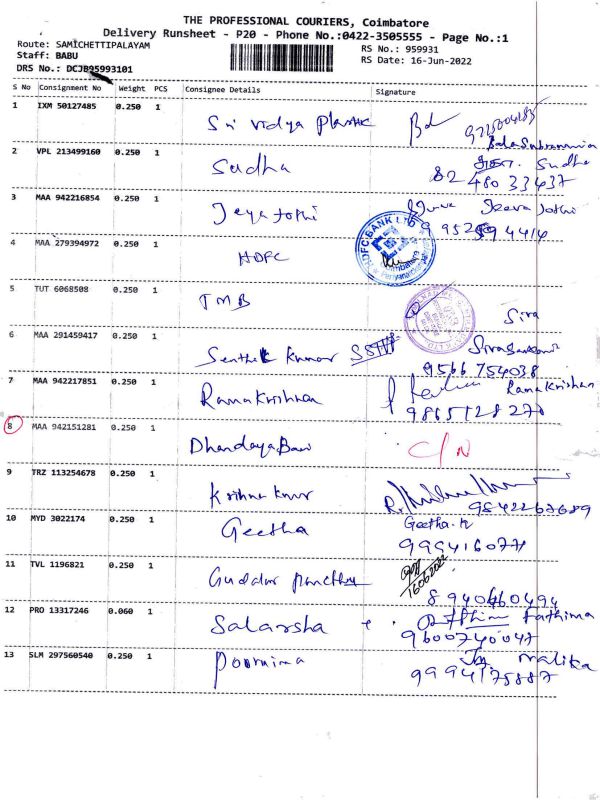 THE PROFESSIONAL COURIERS, Coimbatore
Delivery Runsheet - P20 - Phone No.:0422-3505555 - Page No.:1
Route: SAMICHETTIPALAYAM
Staff: BABU
DRS No.: DCJB95993101
RS No.: 959931
RS Date: 16-Jun-2022
S No Consignment No Weight PCS Consignee Details Signature
1 IXM 50127485 0.250 1
Sri Vidya Plastic
2 VPL 213499160 0.250 1
Sudha Sudha
82 48033437
3 MAA 942216854 0.250 1
Jeyajothi Jeeva Jothi
4 MAA 279394972 0.250 1
HDFC
HDFC BANK LTD
5 TUT 6068508 0.250 1
TMB Siva
6 MAA 291459417 0.250 1
Senthil Kumar
9566 754038
7 MAA 942217851 0.250 1
Ramakrishnan Ramakrishnan
9865128270
8 MAA 942151281 0.250 1
C/N
9 TRZ 113254678 0.250 1
Krishna Kumar
9842267689
10 MYD 3022174 0.250 1
Geetha Geetha
999416077
11 TVL 1196821 0.250 1
Gudalur
16/06/2022
8940460494
12 PRO 13317246 0.060 1
Salaisha Fathima
9600740047
13 SLM 297560540 0.250 1
Poornima Malika
9994175887